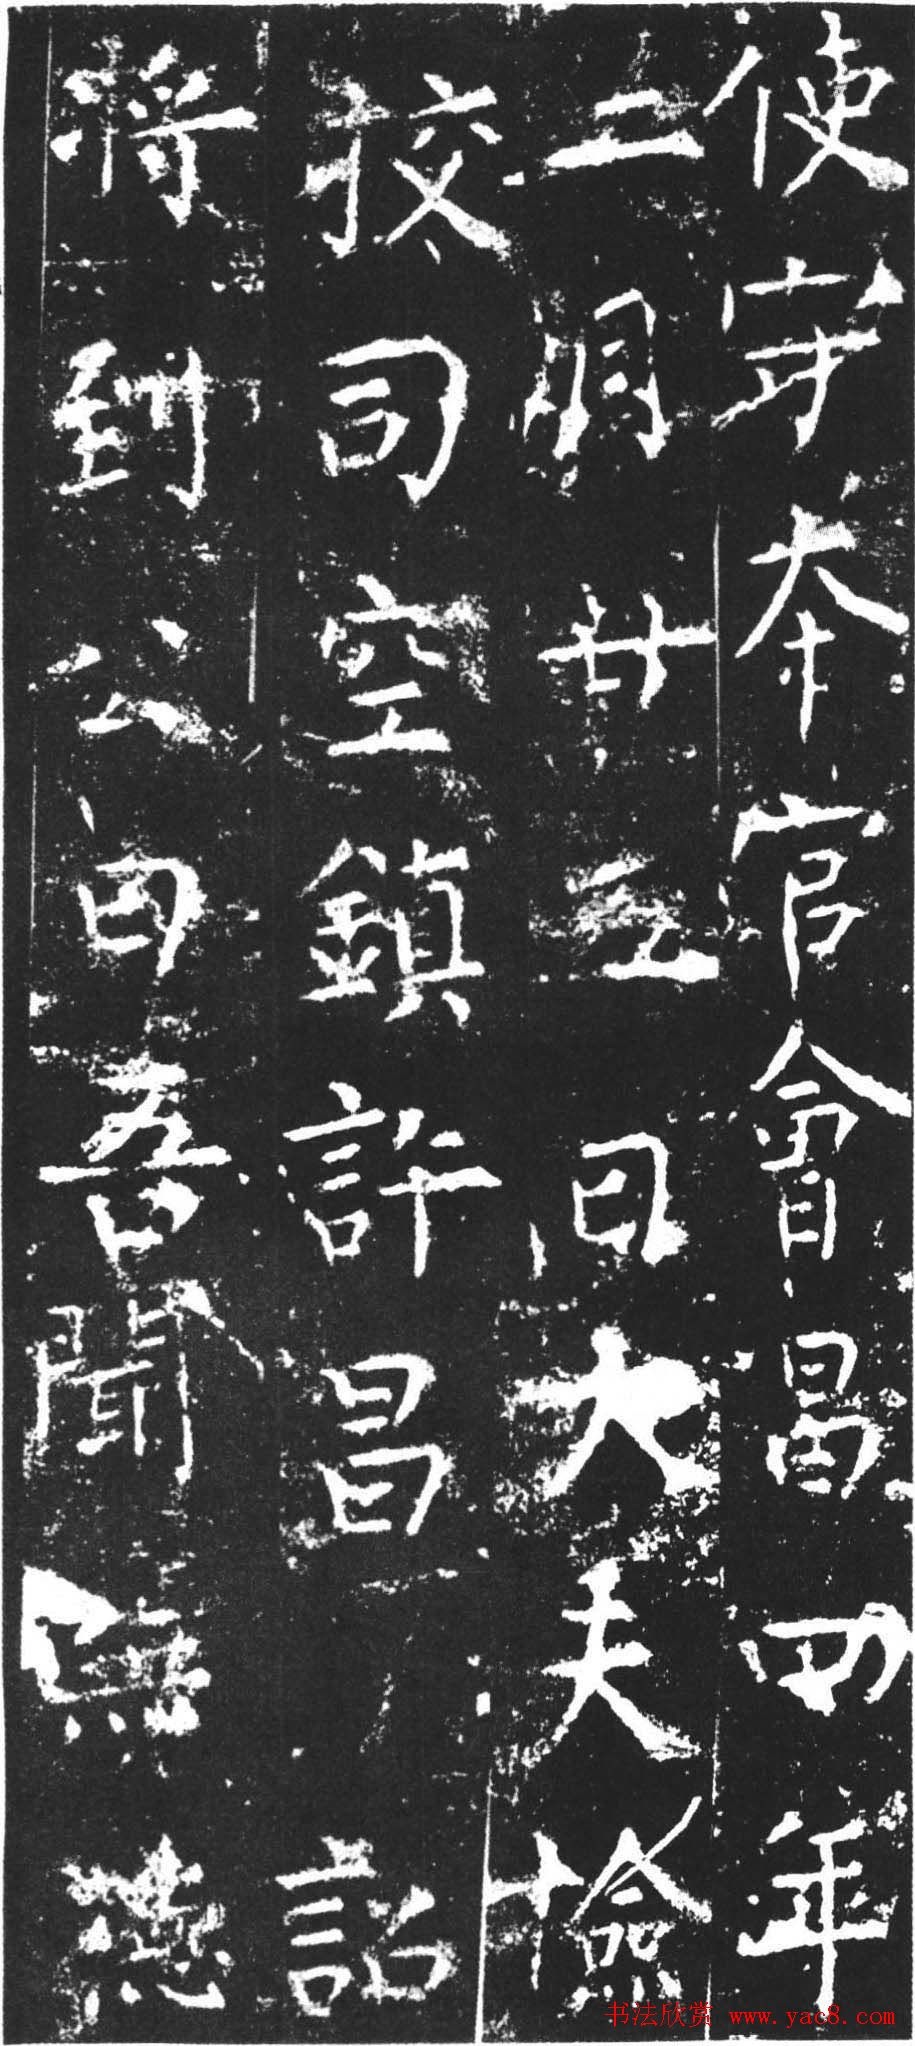 使守本官會昌四年
二月廿三日大夫檢
挍司空鎮許昌詔
將到公曰吾聞無德
书法欣赏 www.yac8.com